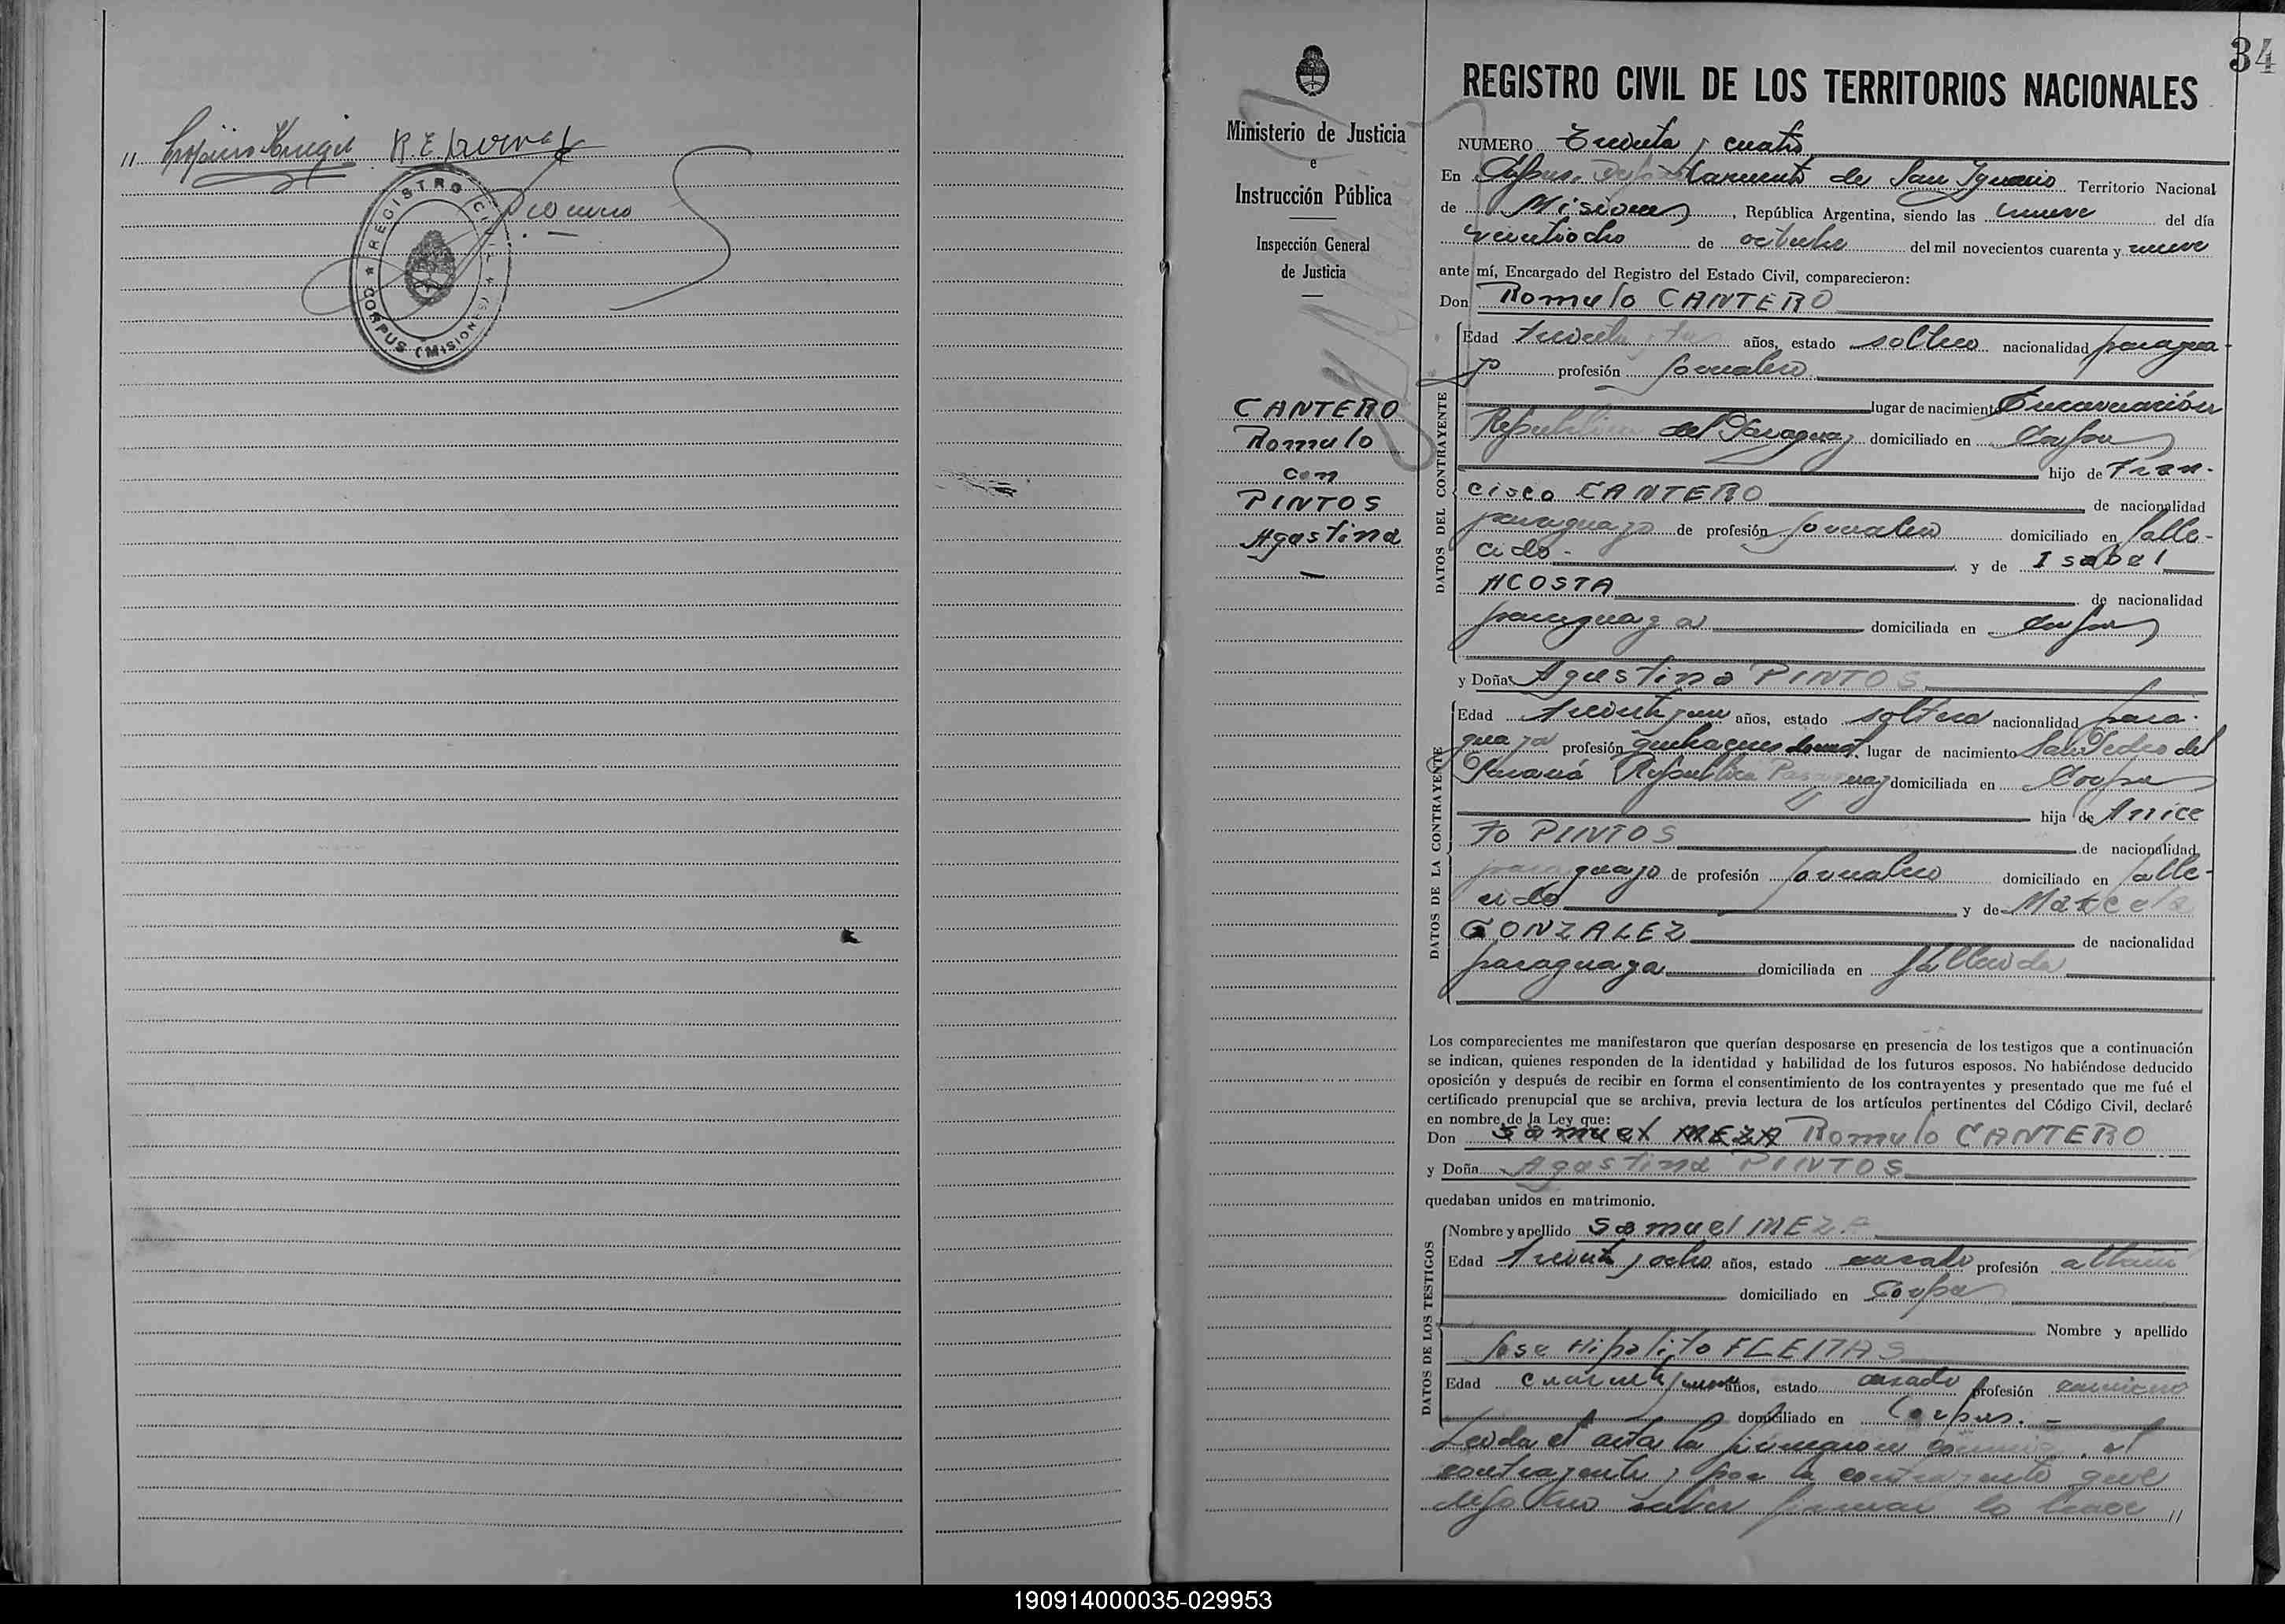 //
REGISTRO CIVIL
CORPUS (MISIONES)
34
Ministerio de Justicia
e
Instrucción Pública
Inspección General
de Justicia
CANTERO
Romulo
con
PINTOS
Agustina
REGISTRO CIVIL DE LOS TERRITORIOS NACIONALES
NUMERO Treinta y cuatro
En Corpus, Departamento de San Ignacio Territorio Nacional
de Misiones, República Argentina, siendo las nueve del día
veintiocho de octubre del mil novecientos cuarenta y nueve
ante mí, Encargado del Registro del Estado Civil, comparecieron:
Don Romulo CANTERO
Edad treinta y tres años, estado soltero nacionalidad paragua-
yo profesión jornalero
lugar de nacimiento Encarnación
República del Paraguay domiciliado en Corpus
hijo de Fran-
cisco CANTERO de nacionalidad
paraguayo de profesión jornalero domiciliado en falle-
cido- y de Isabel
ACOSTA de nacionalidad
paraguaya domiciliada en Corpus
y Doña Agustina PINTOS
Edad treinta y un años, estado soltera nacionalidad para-
guaya profesión quehaceres domest. lugar de nacimiento San Pedro del
Paraná República Paraguay domiciliada en Corpus
hija de Anice
to PINTOS de nacionalidad
paraguayo de profesión jornalero domiciliado en falle-
cido y de Marcela
GONZALEZ de nacionalidad
paraguaya domiciliada en fallecida
DATOS DEL CONTRAYENTE
DATOS DE LA CONTRAYENTE
Los comparecientes me manifestaron que querían desposarse en presencia de los testigos que a continuación
se indican, quienes responden de la identidad y habilidad de los futuros esposos. No habiéndose deducido
oposición y después de recibir en forma el consentimiento de los contrayentes y presentado que me fué el
certificado prenupcial que se archiva, previa lectura de los artículos pertinentes del Código Civil, declaré
en nombre de la Ley que:
Don Samuel MEZA Romulo CANTERO
y Doña Agustina PINTOS
quedaban unidos en matrimonio.
Nombre y apellido Samuel MEZA
Edad treinta y ocho años, estado casado profesión
domiciliado en Corpus
Nombre y apellido
Jose Hipolito FLEITAS
Edad cuarenta y años, estado casado profesión
domiciliado en Corpus.-
DATOS DE LOS TESTIGOS
Leida el acta la firmaron conmigo, el
contrayente y por la contrayente que
dijo no saber firmar lo hace //
190914000035-029953